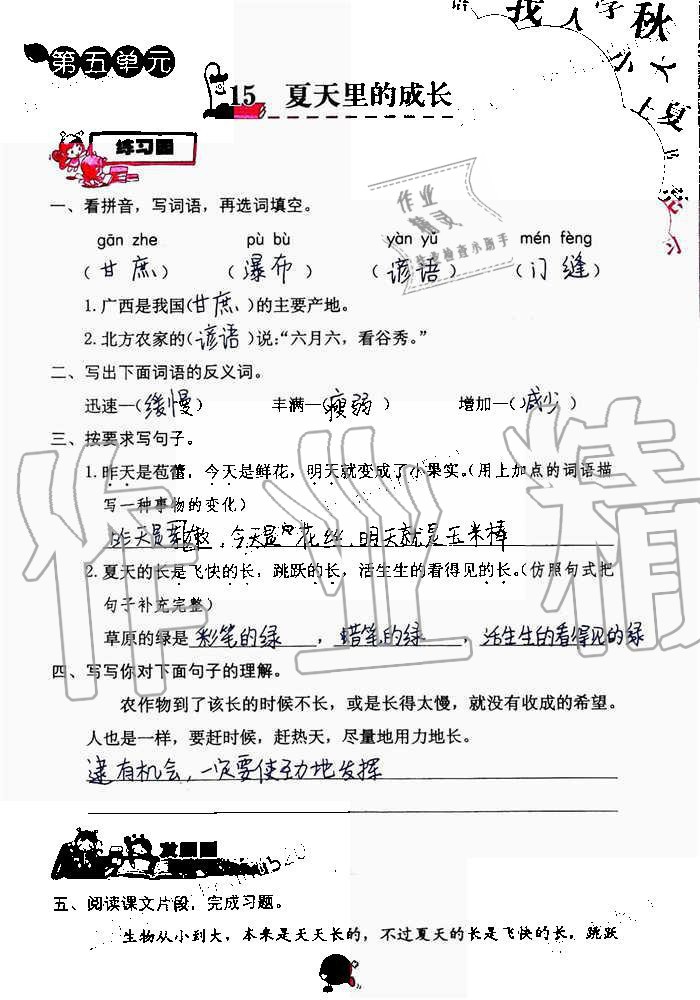 我人学秋
小大
上夏
第五单元
15 夏天里的成长
练习圃
作业
精灵
作业检查小助手
一、看拼音，写词语，再选词填空。
gān zhe pù bù yàn yǔ mén fèng
（甘庶）（瀑布）（谚语）（门缝）
1.广西是我国(甘庶)的主要产地。
2.北方农家的(谚语)说:“六月六，看谷秀。”
二、写出下面词语的反义词。
迅速—(缓慢) 丰满—(瘦弱) 增加—(减少)
三、按要求写句子。
1.昨天是苞蕾，今天是鲜花，明天就变成了小果实。(用上加点的词语描
写一种事物的变化)
昨天是 今天是 花丝，明天就是玉米棒
2.夏天的长是飞快的长，跳跃的长，活生生的看得见的长。(仿照句式把
句子补充完整)
草原的绿是彩笔的绿，蜡笔的绿，活生生的看得见的绿
四、写写你对下面句子的理解。
农作物到了该长的时候不长，或是长得太慢，就没有收成的希望。
人也是一样，要赶时候，赶热天，尽量地用力地长。
逮有机会，一定要使劲地发挥
发展圃
五、阅读课文片段，完成习题。
生物从小到大，本来是天天长的，不过夏天的长是飞快的长，跳跃
作业精